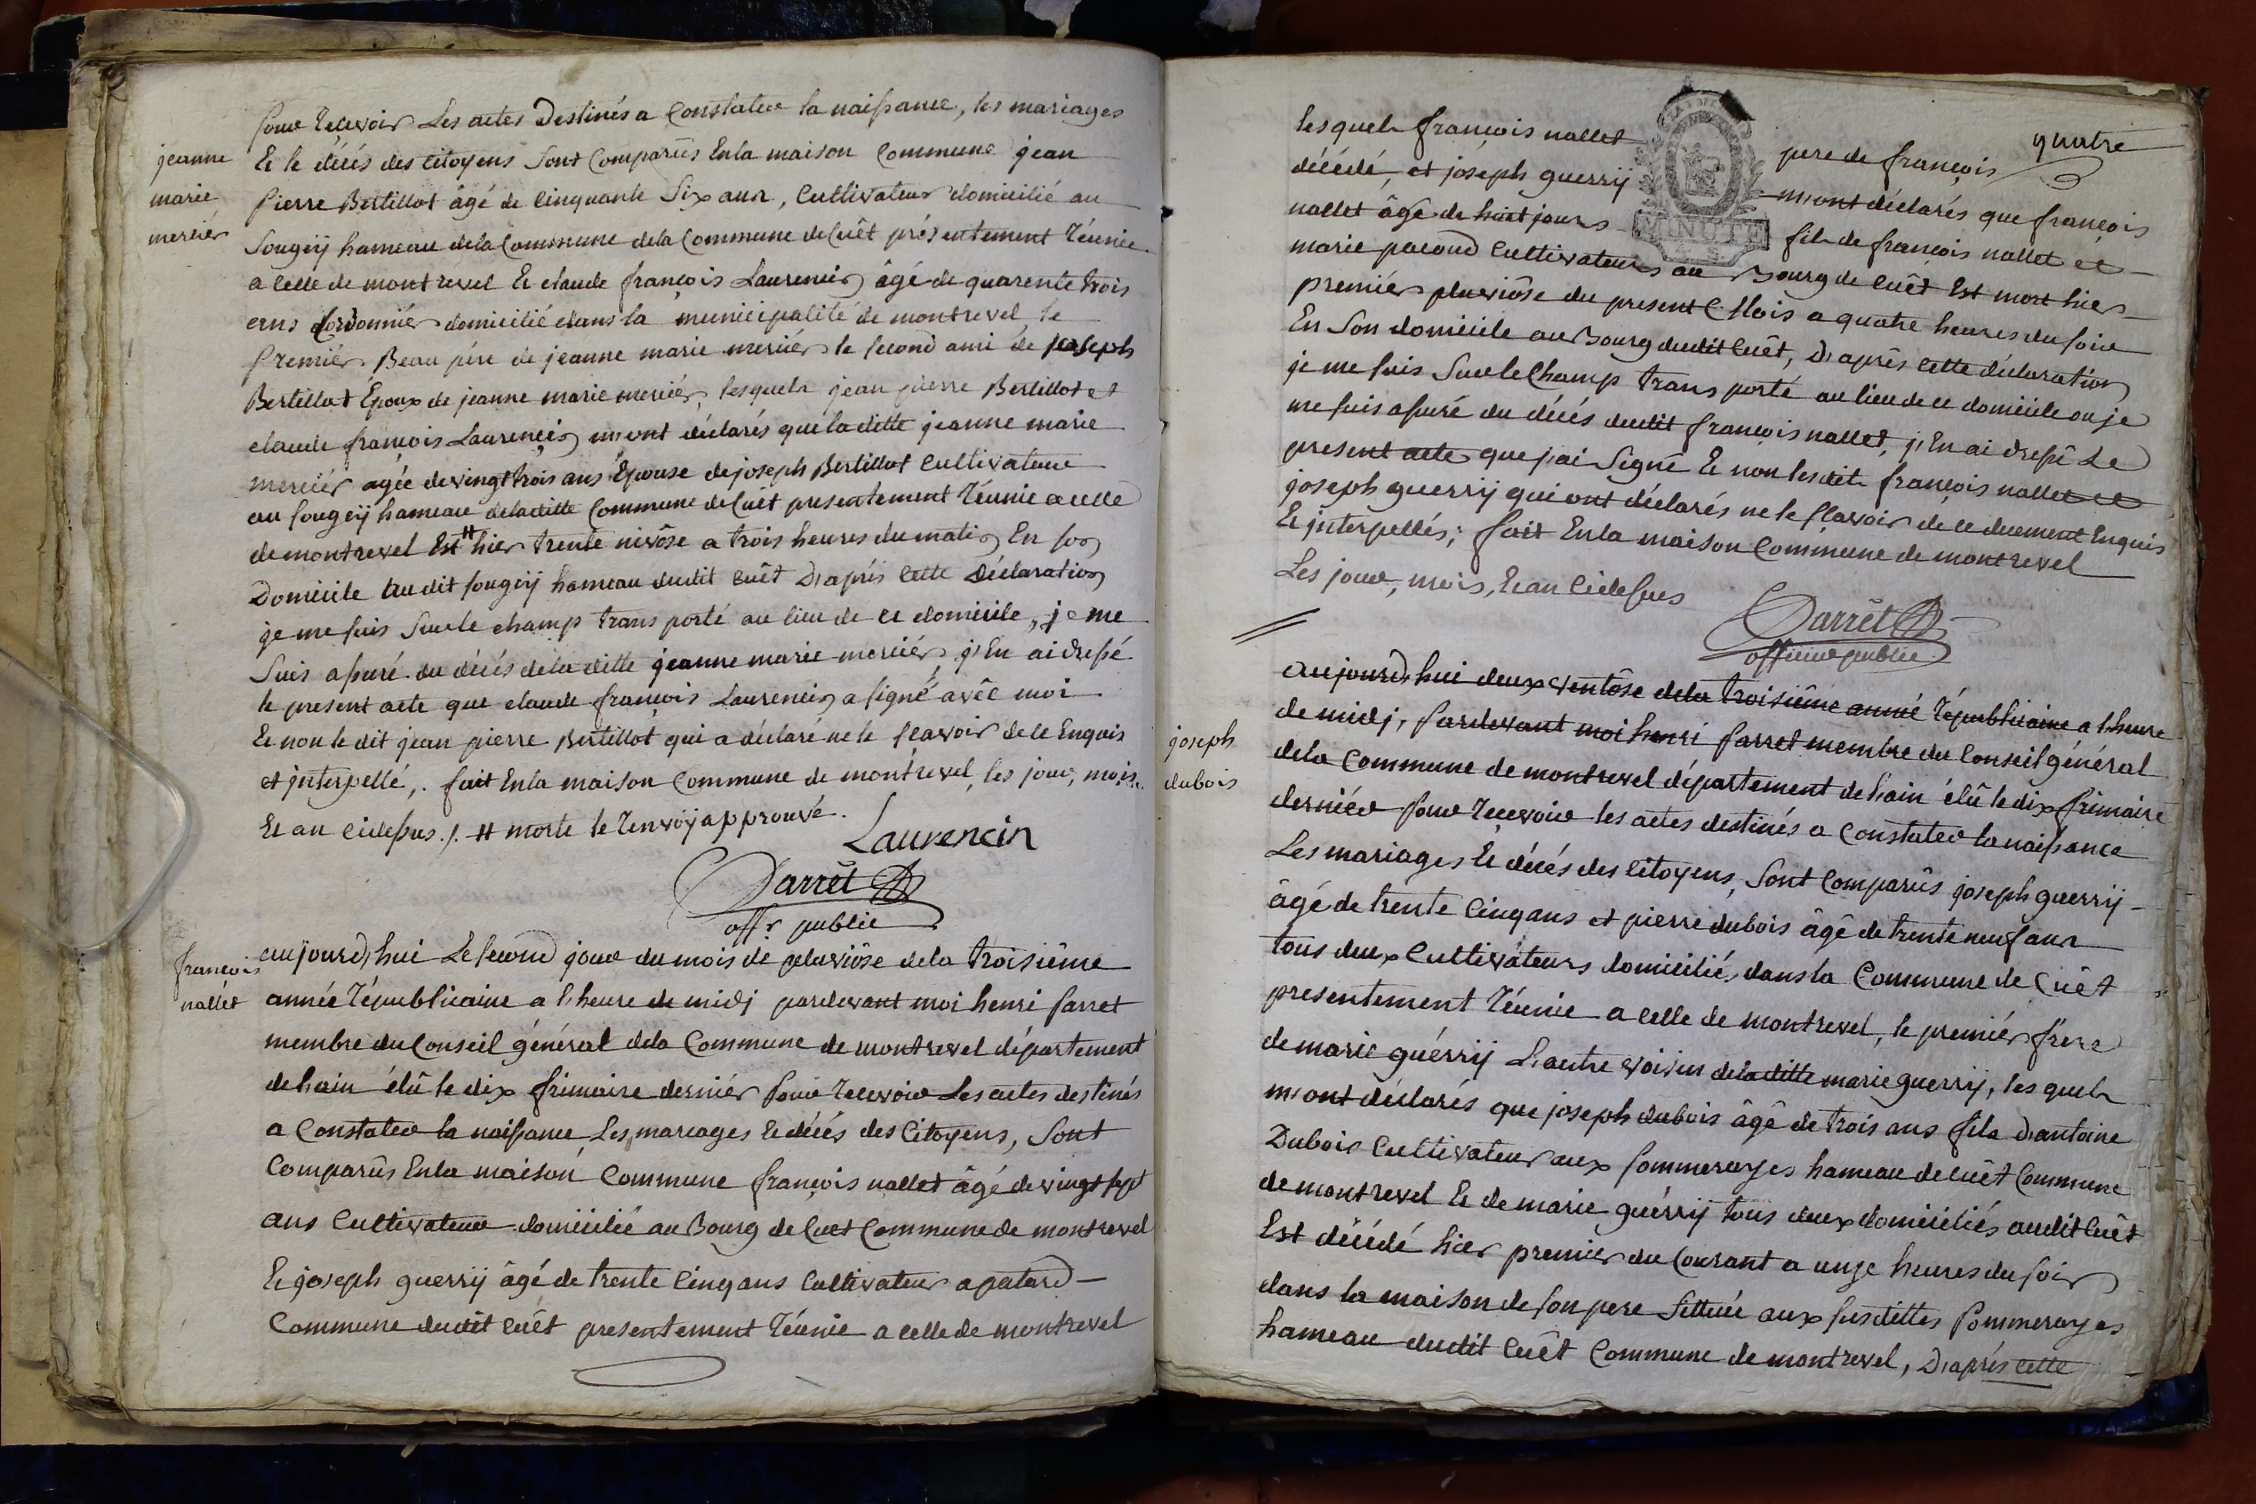 pour recevoir Les actes Destinés a Constater la naissance, les mariages
jeanne
marie
mercier
Et le décés des citoyens Sont Comparûs En la maison Commune jean
pierre Bertillot âgé de Cinquante Six ans, Cultivateur domicilié au
Sougeÿ hameau de la Commune de la Commune de Cuêt présentement réunie
a Celle de montrevel Et claude françois Laurencin âgé de quarente trois
ans Cordonniér domicilié dans la municipalité de montrevel, le
premiér Beau pére de jeanne marie merciér le second ami de joseph
Bertillot Epoux de jeanne marie merciér, lesquels jean pierre Bertillot et
claude françois Laurencin m'ont déclarés que la ditte jeanne marie
merciér agée de vingt trois ans Epouse de joseph Bertillot Cultivateur
au sougeÿ hameau de la ditte Commune de Cuêt presentement réunie a celle
de montrevel Est # hier trente nivôse a trois heures du matin En son
Domicile au dit sougeÿ hameau dudit Cuêt D'aprés Cette Déclaration
je me suis Sur le champ trans porté au lieu de ce domicile, je me
Suis assuré du décés de la ditte jeanne marie merciér, j'En ai dressé
le present acte que claude françois Laurencin a signé avec moi
Et non le dit jean pierre Bertillot qui a déclaré ne le sçavoir de ce Enquis
et jnterpellé,. fait En la maison Commune de montrevel, les jour, mois
Et an Cidessus ./. # morte le renvoÿ approuvé.
Laurencin
Parrêt
offr public
françois
nallét
aujourd'hui Le second jour du mois de pluviôse de la troisiême
année républicaine a l'heure de midj pardevant moi henri parret
membre du Conseil général de la Commune de montrevel département
de l'ain élû le dix frimaire derniér pour recevoir Les actes destinés
a Constater la naissance Les mariages Et décés des Citoyens, Sont
Comparûs En la maison Commune françois nallet âgé de vingt sept
ans Cultivateur domicilié au Bourg de Cuêt Commune de montrevel
Et joseph guerrÿ âgé de trente Cinq ans Cultivateur a
Commune dudit Cuêt presentement réunie a celle de montrevel
quatre
lesquels françois nallet pere de françois
décédé, et joseph guerrÿ m'ont déclarés que françois
MINUTE
nallet âgé de huit jours fils de françois nallet et
marie pacoud Cultivateurs au Bourg de Cuêt Est mort hier
premiér pluviôse du present Mois a quatre heures du soir
En Son domicile au Bourg dudit Cuêt, D'aprês Cette déclaration
je me suis Sur le Champ trans porté au lieu de ce domicile ou je
me suis assuré du décés dudit françois nallet, j'En ai dressé Le
present acte que j'ai Signé Et non lesdits françois nallet et
joseph guerrÿ qui ont déclarés ne le sçavoir de ce duement Enquis
Et jnterpellés; fait En la maison Commune de montrevel
Les jour, mois, Et an Cidessus
Parrêt
officier public
joseph
dubois
aujourd'hui deux ventôse de la troisiême année républicaine a l'heure
de midj, pardevant moi henri parret membre du Conseil général
de la Commune de montrevel département de l'ain élû le dix frimaire
derniér pour recevoir les actes destinés a Constater la naissance
Les mariages Et décés des Citoyens, Sont Comparûs joseph guerrÿ
âgé de trente Cinq ans et pierre dubois âgé de trente neuf ans
tous deux Cultivateurs domiciliés dans la Commune de Cuêt
presentement réunie a celle de montrevel, le premiér frére
de marie guérrÿ L'autre voisin de la ditte marie guerrÿ, lesquels
m'ont déclarés que joseph dubois âgé de trois ans fils d'antoine
Dubois Cultivateur aux pommerayes hameau de Cuêt Commune
de montrevel Et de marie guérrÿ tous deux domiciliés audit Cuêt
Est décédé hier premier du Courant a onze heures du soir
dans la maison de son pere Sittuée aux susdittes pommerayes
hameau dudit Cuêt Commune de montrevel, D'aprés cette